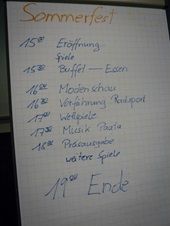 Sommerfest
15:00 Eröffnung
Spiele
15:30 Buffet – Essen
16:00 Modenschau
16:30 Vorführung
17:00 Wettspiele
17:30 Musik
18:00 Preisausgabe
weitere Spiele
19:00 Ende